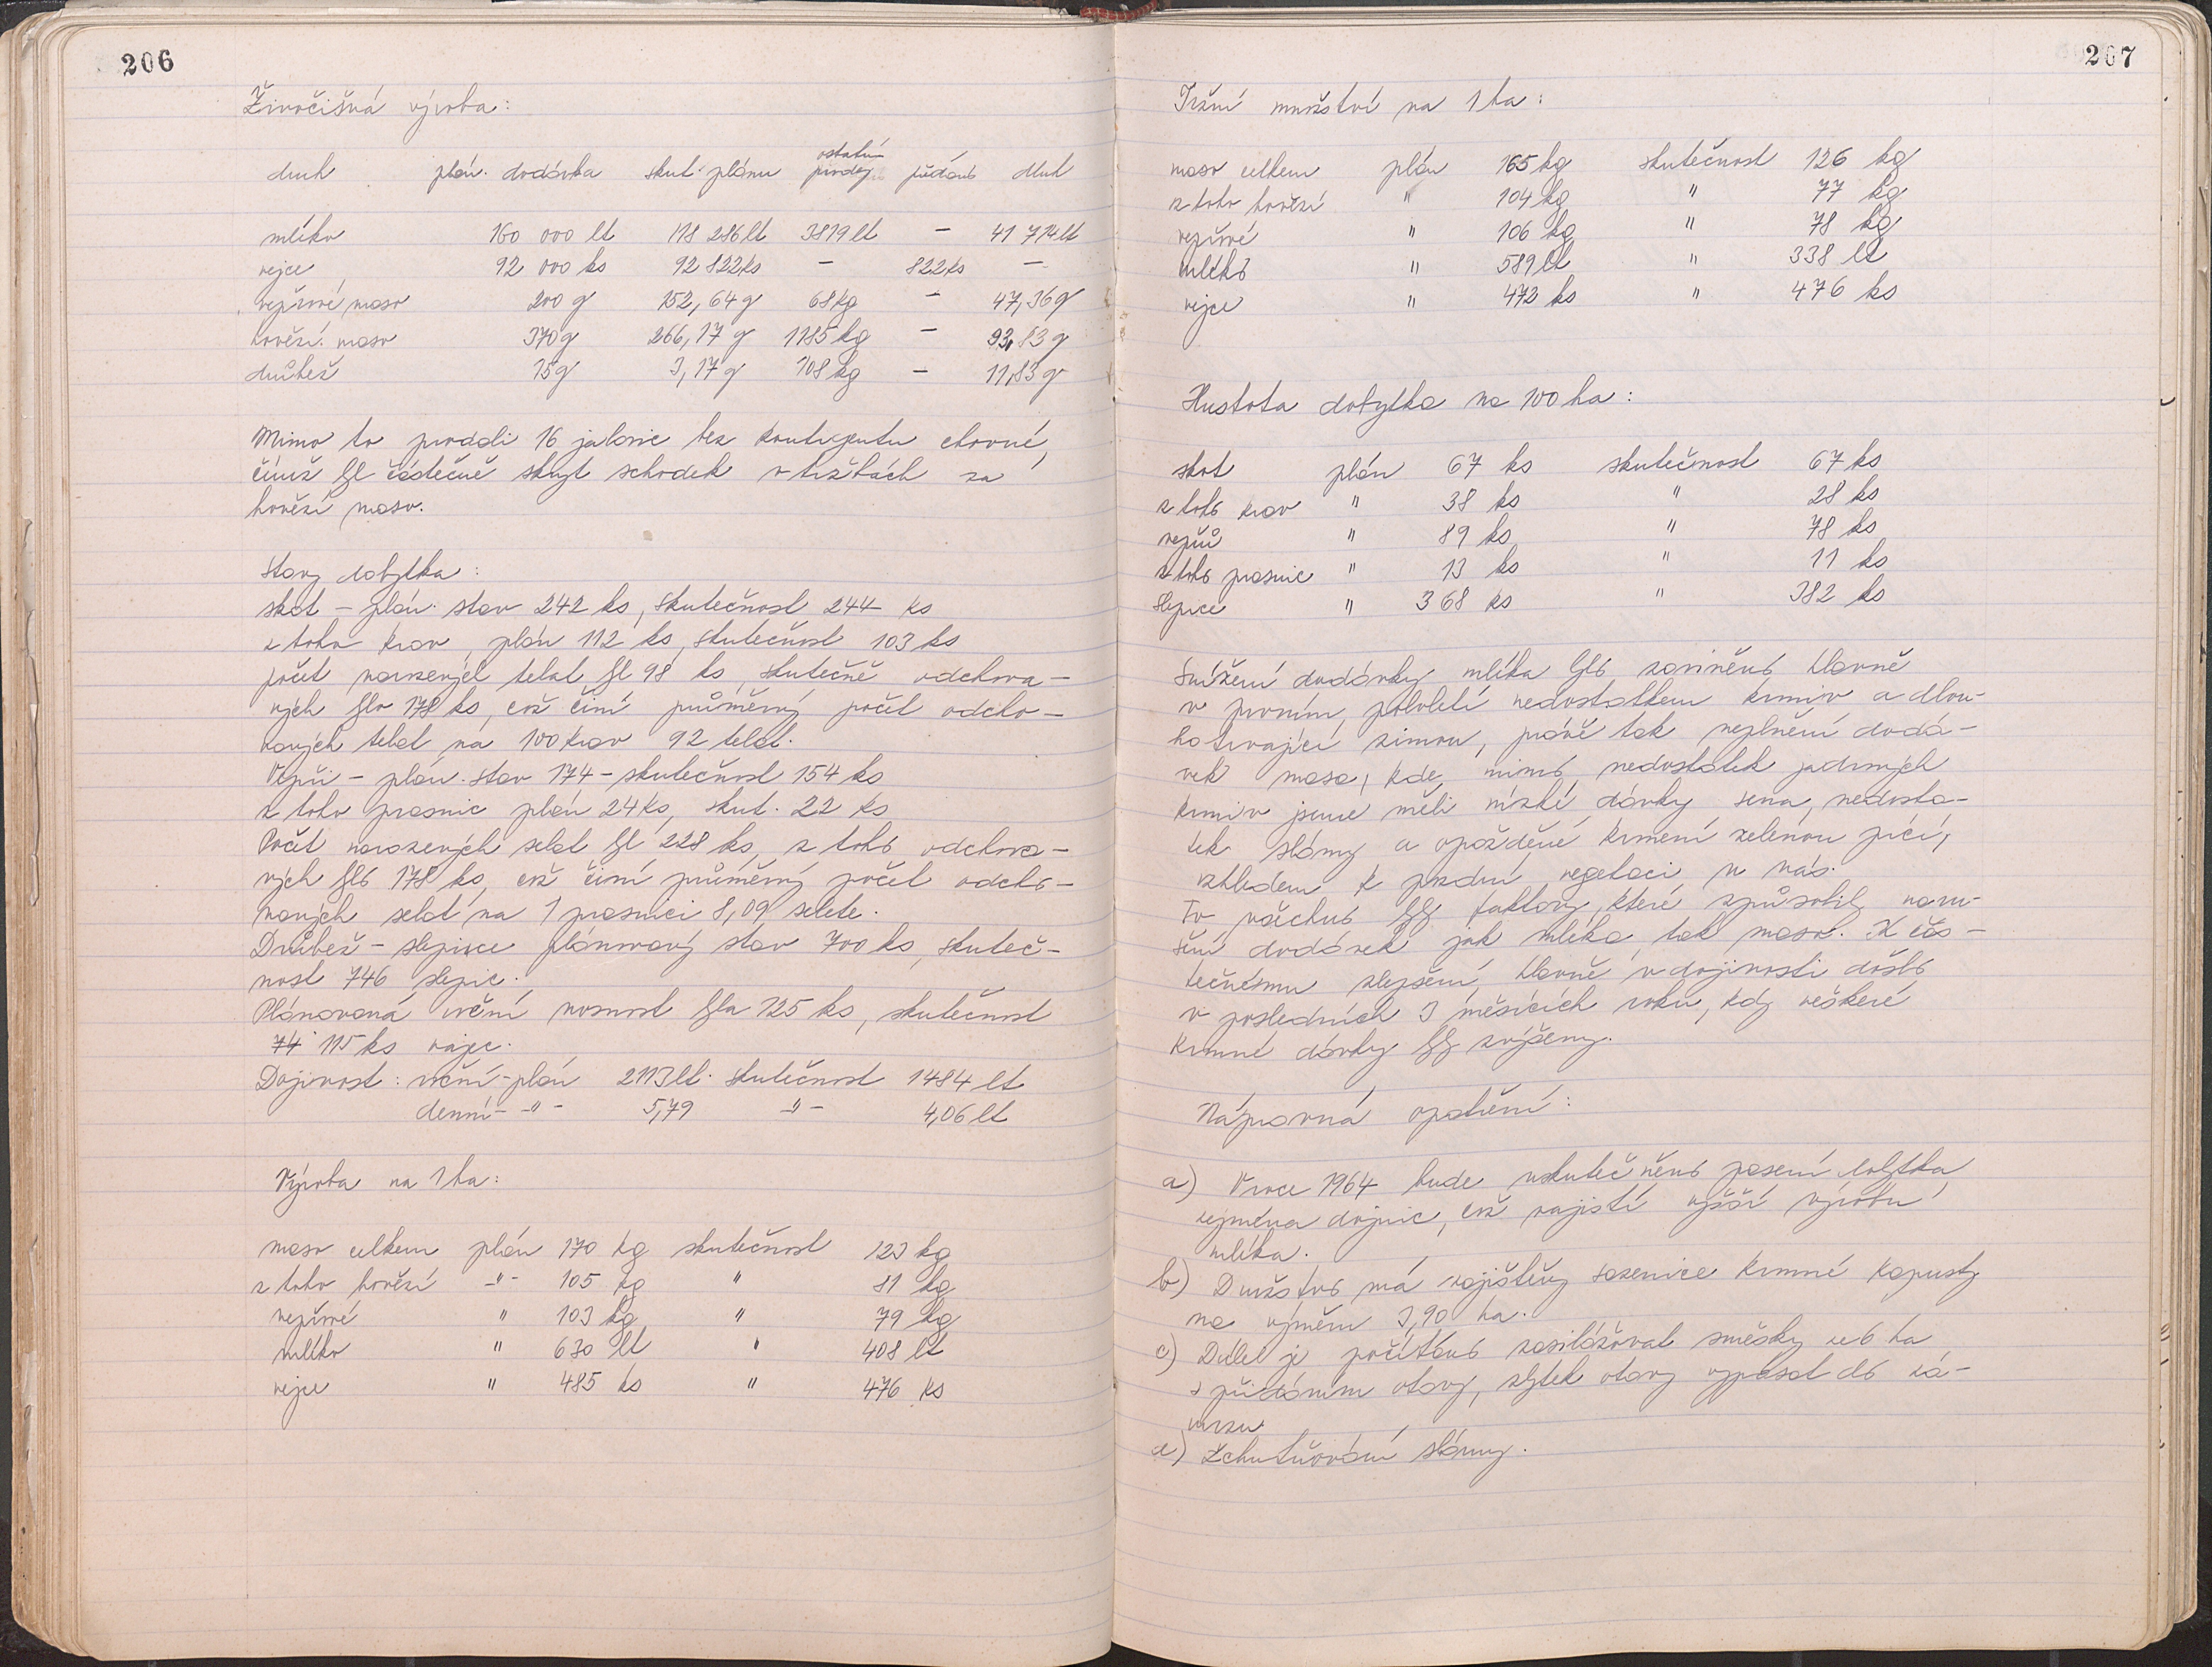 206
Živočišná výroba:
druh plán. dodávka skut. plánu ostatní prodej předáno dluh
mléko 160 000 lt 118 286 lt 3819 lt — 41 714 lt
vejce 92 000 ks 92 822 ks — 822 ks —
vepřové maso 200 q 152,64 q 68 kg — 47,36 q
hovězí maso 370 q 266,17 q 1185 kg — 93,83 q
drůbež 15 q 3,17 q 108 kg — 11,83 q
Mimo to prodali 16 jalovic bez kontigentu chovné,
čímž byl částečně skryt schodek v tržbách za
hovězí maso.
Stavy dobytka:
skot – plán. stav 242 ks, skutečnost 244 ks
z toho krav, plán 112 ks, skutečnost 103 ks
počet narozených telat byl 98 ks, skutečně odchova-
ných bylo 178 ks, což činí průměrný počet odcho-
vaných telat na 100 krav 92 telat.
Vepři – plán. stav 174 – skutečnost 154 ks
z toho prasnic plán 24 ks, skut. 22 ks
Počet narozených selat byl 228 ks, z toho odchova-
ných bylo 178 ks, což činí průměrný počet odcho-
vaných selat na 1 prasnici 8,09 selete.
Drůbež – slepice plánovaný stav 700 ks, skuteč-
nost 746 slepic.
Plánovaná roční nosnost byla 125 ks, skutečnost
74 115 ks vajec.
Dojivost: roční – plán 2113 lt. skutečnost 1484 lt
denní – " – 5,79 – " – 4,06 lt
Výroba na 1 ha:
maso celkem plán 170 kg skutečnost 123 kg
z toho hovězí – " – 105 kg " 81 kg
vepřové " 103 kg " 79 kg
mléko " 630 lt " 408 lt
vejce " 485 ks " 476 ks
207
Tržní množství na 1 ha:
maso celkem plán 165 kg skutečnost 126 kg
z toho hovězí " 104 kg " 77 kg
vepřové " 106 kg " 78 kg
mléko " 589 lt " 338 lt
vejce " 472 ks " 476 ks
Hustota dobytka na 100 ha:
skot plán 67 ks skutečnost 67 ks
z toho krav " 38 ks " 28 ks
vepřů " 89 ks " 78 ks
z toho prasnic " 13 ks " 11 ks
slepice " 368 ks " 382 ks
Snížení dodávky mléka bylo zaviněno hlavně
v prvním pololetí nedostatkem krmiv a dlou-
hotrvající zimou, právě tak neplnění dodá-
vek masa, kde mimo nedostatek jadrných
krmiv jsme měli nízké dávky sena, nedosta-
tek slámy a opožděné krmení zelenou pící,
vzhledem k pozdní vegetaci u nás.
To všechno byly faktory, které způsobily naru-
šení dodávek jak mléka, tak masa. K čás-
tečnému zlepšení, hlavně v dojivosti došlo
v posledních 3 měsících roku, kdy veškeré
krmné dávky byly zvýšeny.
Nápravná opatření:
a) V roce 1964 bude uskutečněno pasení dobytka,
zejména dojnic, což zajistí vyšší výrobu
mléka.
b) Družstvo má zajištěny sazenice krmné kapusty
na výměru 3,90 ha.
c) Dále je počítáno zasilážovat směsky ze 6 ha
s přidáním otavy, zbytek otavy vypásat do zá-
mrzu.
d) Zchutňování slámy.